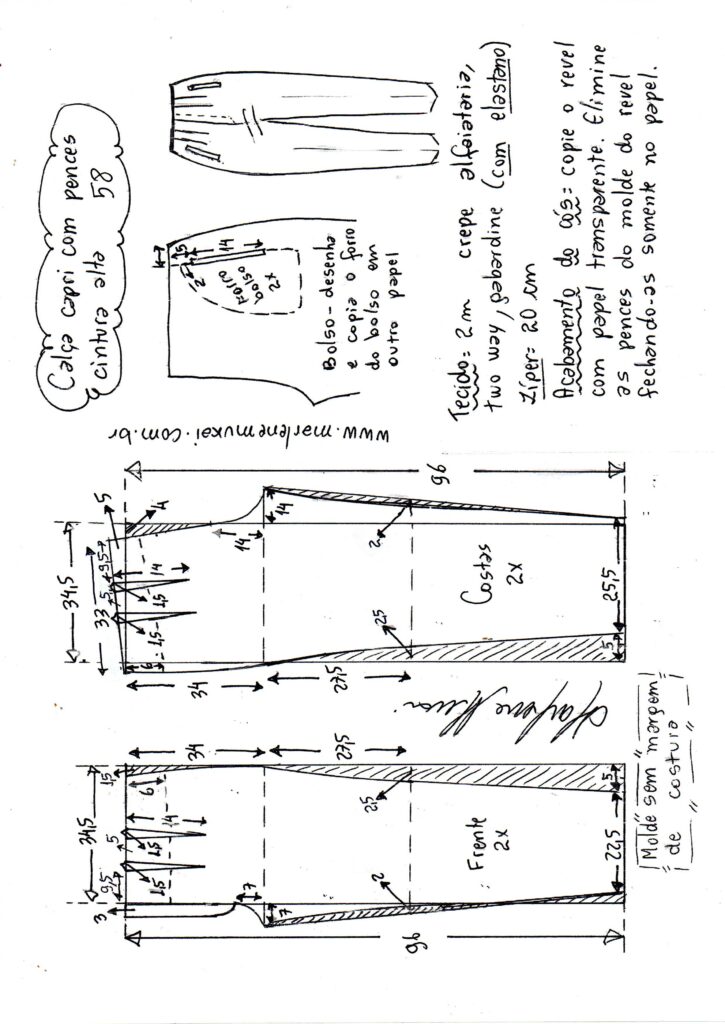 Calça capri com pences
cintura alta 58
5
14
2
FORRO
bolso
2x
Bolso-desenha
e copia o forro
do bolso em
outro papel
Tecido= 2m crepe alfaiataria,
two way, gabardine (com elastano)
Zíper= 20 cm
Acabamento do cós= copie o revel
com papel transparente. Elimine
as pences do molde do revel
fechando-as somente no papel.
www.marlenemukai.com.br
96
5
4
34,5
33
9,5
5
14
1,5
1,5
6
14
14
34
27,5
2
2,5
Costas
2x
25,5
5
34
27,5
34,5
1,5
6
14
5
1,5
1,5
9,5
3
7
7
2,5
2
Frente
2x
5
22,5
96
Molde sem margem
de costura